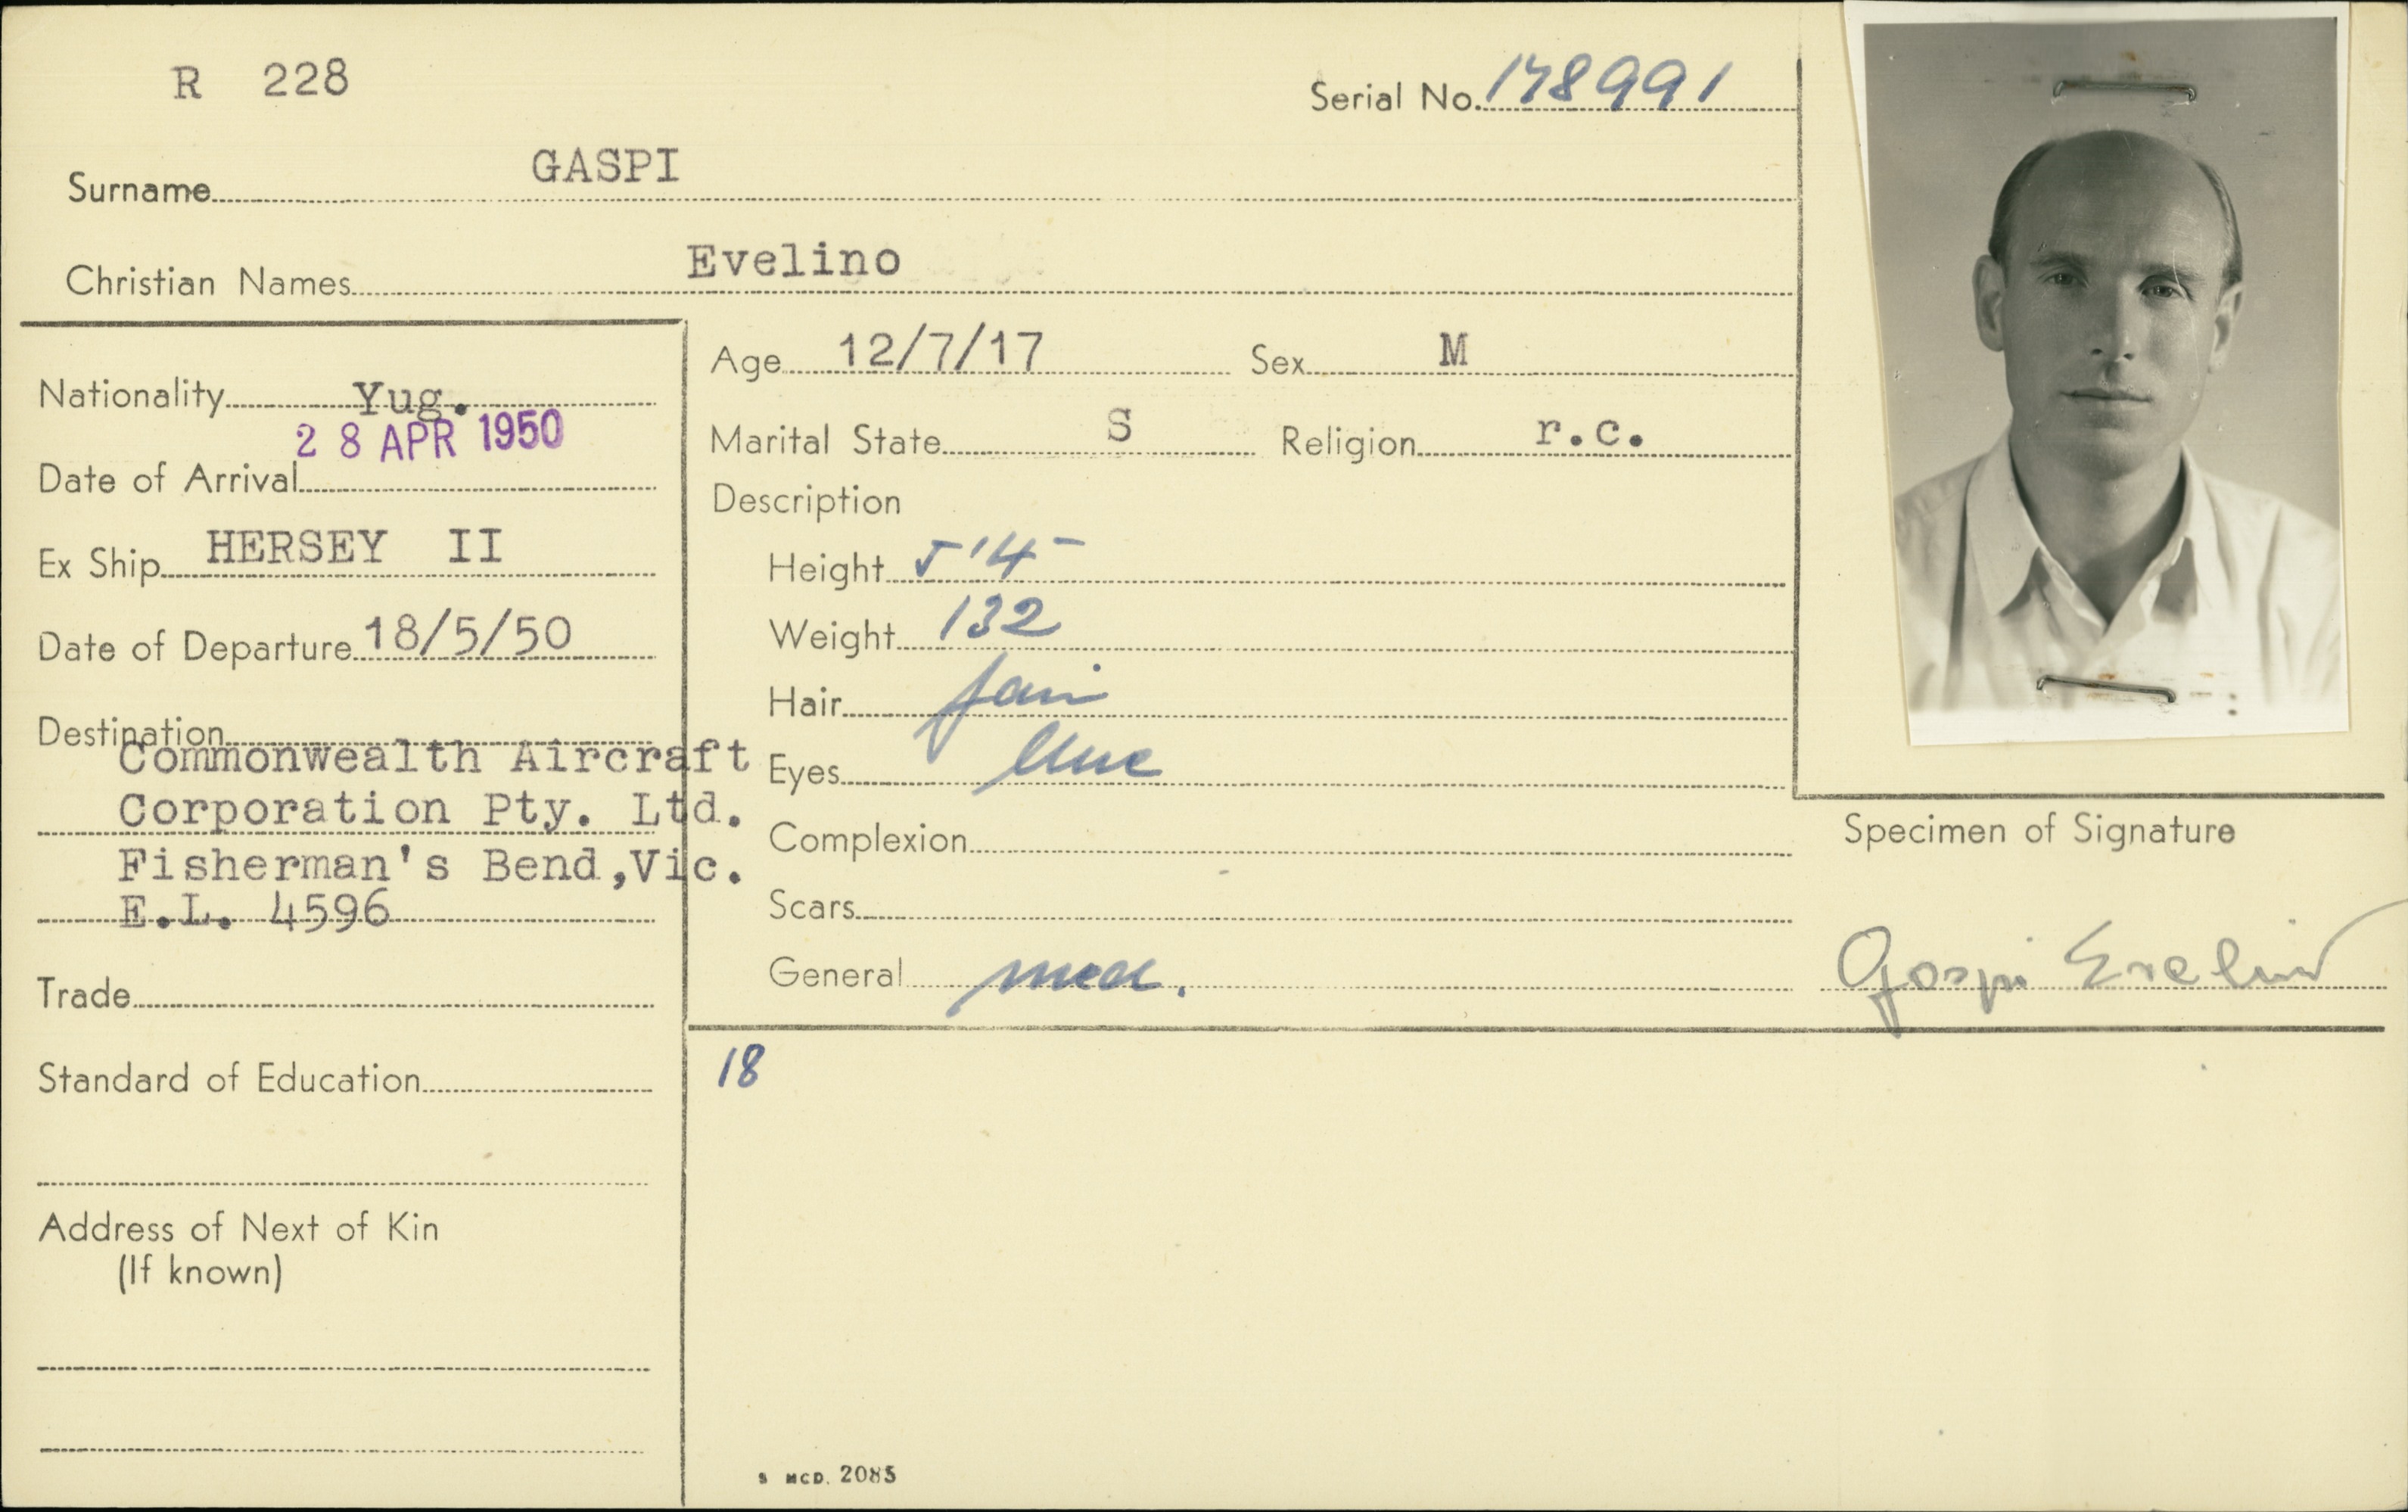 R 228
Serial No. 178991
Surname GASPI
Christian Names Evelino
Nationality Yug.
28 APR 1950
Date of Arrival
Ex Ship HERSEY II
Date of Departure 18/5/50
Destination
Commonwealth Aircraft
Corporation Pty. Ltd.
Fisherman's Bend, Vic.
E.L. 4596
Trade
Standard of Education
Address of Next of Kin
(If known)
Age 12/7/17 Sex M
Marital State S Religion r.c.
Description
Height 5'4"
Weight 132
Hair fair
Eyes blue
Complexion
Scars
General med.
18
Specimen of Signature
Gaspi Evelino
S MCD. 2085